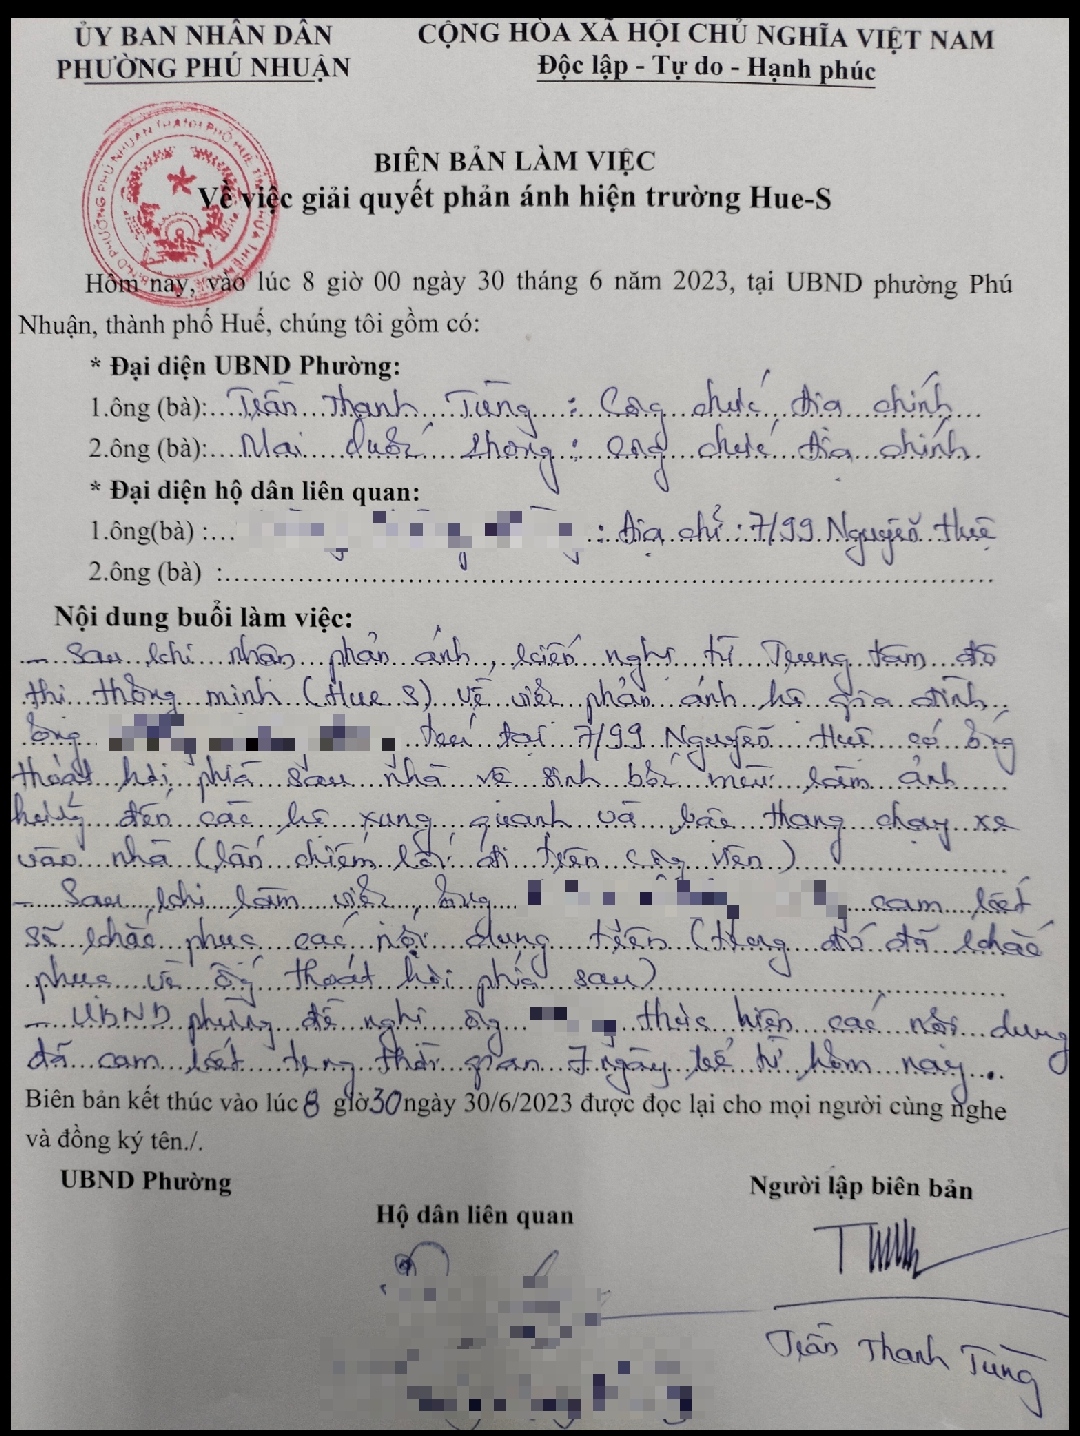 ỦY BAN NHÂN DÂN
PHƯỜNG PHÚ NHUẬN
CỘNG HÒA XÃ HỘI CHỦ NGHĨA VIỆT NAM
Độc lập - Tự do - Hạnh phúc
BIÊN BẢN LÀM VIỆC
Về việc giải quyết phản ánh hiện trường Hue-S
Hôm nay, vào lúc 8 giờ 00 ngày 30 tháng 6 năm 2023, tại UBND phường Phú
Nhuận, thành phố Huế, chúng tôi gồm có:
* Đại diện UBND Phường:
1.ông (bà):..Trần Thanh Tùng : Công chức địa chính
2.ông (bà):..Mai Quốc : Công chức địa chính
* Đại diện hộ dân liên quan:
1.ông(bà) :... : Địa chỉ : 7/99 Nguyễn Huệ
2.ông (bà) :
Nội dung buổi làm việc:
- Sau khi nhận phản ánh, kiến nghị từ Trung tâm đô
thị thông minh (Hue S) về việc phản ánh hộ gia đình
ông trú tại 7/99 Nguyễn Huệ có ống
thoát hơi phía sau nhà vệ sinh bốc mùi làm ảnh
hưởng đến các hộ xung quanh và bắc thang chạy xe
vào nhà (lấn chiếm lối đi trên công viên)
- Sau khi làm việc, ông cam kết
sẽ khắc phục các nội dung trên (trong đó đã khắc
phục về ống thoát hơi phía sau)
- UBND phường đề nghị ông thực hiện các nội dung
đã cam kết trong thời gian 7 ngày kể từ hôm nay.
Biên bản kết thúc vào lúc 8 giờ 30 ngày 30/6/2023 được đọc lại cho mọi người cùng nghe
và đồng ký tên./.
UBND Phường
Hộ dân liên quan
Người lập biên bản
Trần Thanh Tùng